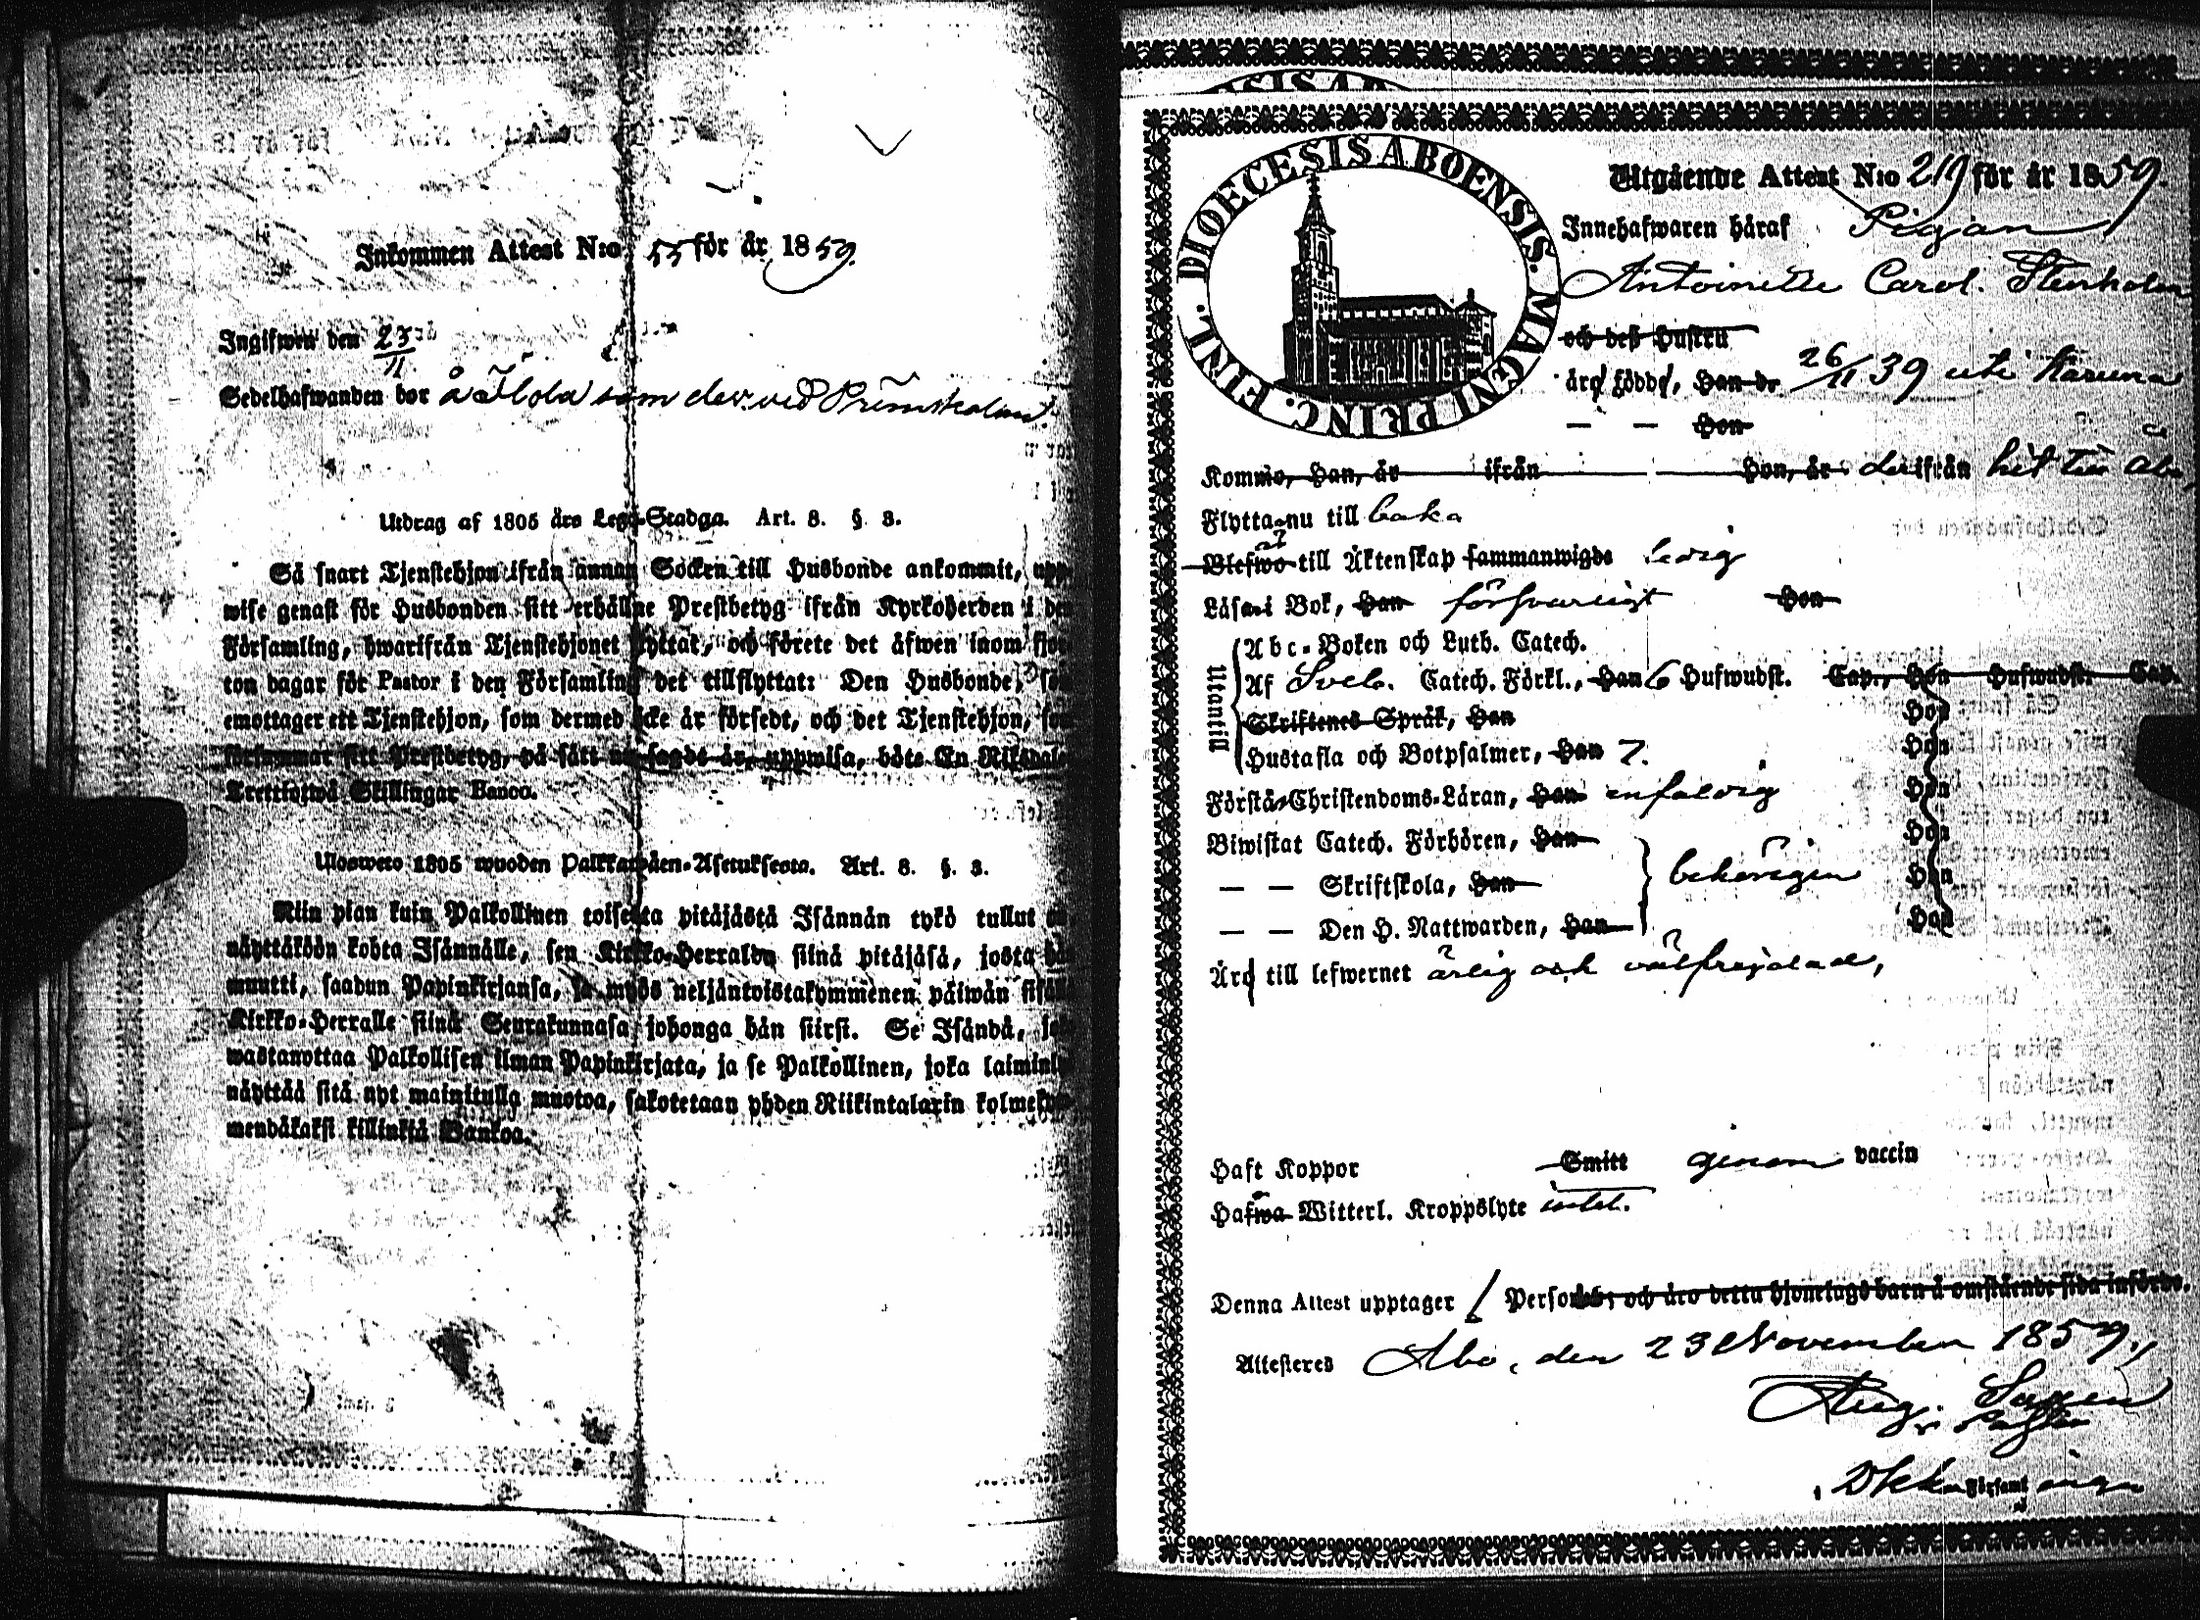 Inkommen Attest N:o 55 för år 1859.
Ingifwen den 23/11
Sedelhafwanden bor å Ylola som der. wid
Utdrag af 1805 års Lego-Stadga. Art. 8. §. 3.
Så snart Tjenstehjon ifrån annan Socken till Husbonde ankommit, upp-
wise genast för Husbonden sitt erhållne Prestbetyg ifrån Kyrkoherden i den
Församling, hwarifrån Tjenstehjonet flyttat, och förete det äfwen inom fjor-
ton dagar för Pastor i den Församling det tillflyttat: Den Husbonde, som
emottager ett Tjenstehjon, som dermed icke är försedt, och det Tjenstehjon, som
försummar sitt Prestbetyg, på sätt nu sagdt är, uppwisa, böte En Riksdaler
Trettiotwå Skillingar Banco.
Uloswето 1805 wuoden Palkkawäen-Asetuksesta. Art. 8. §. 3.
Niin pian kuin Palkollinen toisesta pitäjästä Isännän tykö tullut on
näyttäköön kohta Isännälle, sen Kirkko-Herralda siinä pitäjäsä, josta hän
muutti, saadun Papinkirjansa, ja myös neljäntoistakymmenen päiwän sisällä
Kirkko-Herralle siinä Seurakunnasa johonga hän siirsi. Se Isändä, joka
wastanottaa Palkollisen ilman Papinkirjata, ja se Palkollinen, joka laiminlyö
näyttää sitä nyt mainitulla muotoa, sakotetaan yhden Riikintalarin kolmekym-
mendäkaksi killinkiä Bankoa.
DIOECESIS ABOENSIS. MAGNI PRINC. FINL.
Utgående Attest N:o 219 för år 1859.
Innehafwaren häraf Pigan
Antoinette Carol. Stenholm
och deß Hustru
äro födde, Han d. 26/11 39 uti Karuna
— — Hon
Kommo, Han, år ifrån Hon, år derifrån hit till Åbo,
Flytta nu till baka
Blefwo till Äktenskap sammanwigde ledig
Läsa i Bok, Han försvarligt Hon
Utantill
Abc-Boken och Luth. Catech.
Af Sveb. Catech. Förkl., Han 6 Hufwudst. Cap., Hon Hufwudst. Cap.
Skriftenes Språk, Han Hon
Hustafla och Botpsalmer, Han 7. Hon
Förstå Christendoms-Läran, Han enfaldig Hon
Biwistat Catech. Förhören, Han Hon
— — Skriftskola, Han behörigen Hon
— — Den H. Nattwarden, Han Hon
Äro till lefwernet ärlig och välfrejdad,
Haft Koppor Smitt genom vaccin
Hafwa Witterl. Kroppslyte intet.
Denna Attest upptager 1 Personer, och äro detta hjonelags barn å omstående sida införde.
Attesteres Åbo, den 23 November 1859.
Aug.
Församl